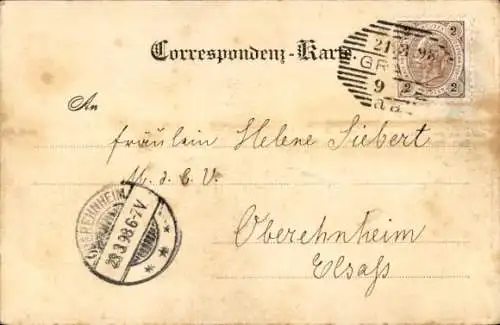 Correspondenz-Karte
2 2
21.3.98
GR
9
a a
An
Fräulein Helene Siebert
M. d. E. V.
OBEREHNHEIM
23.3.98 6-7 V
Oberehnheim
Elsaß